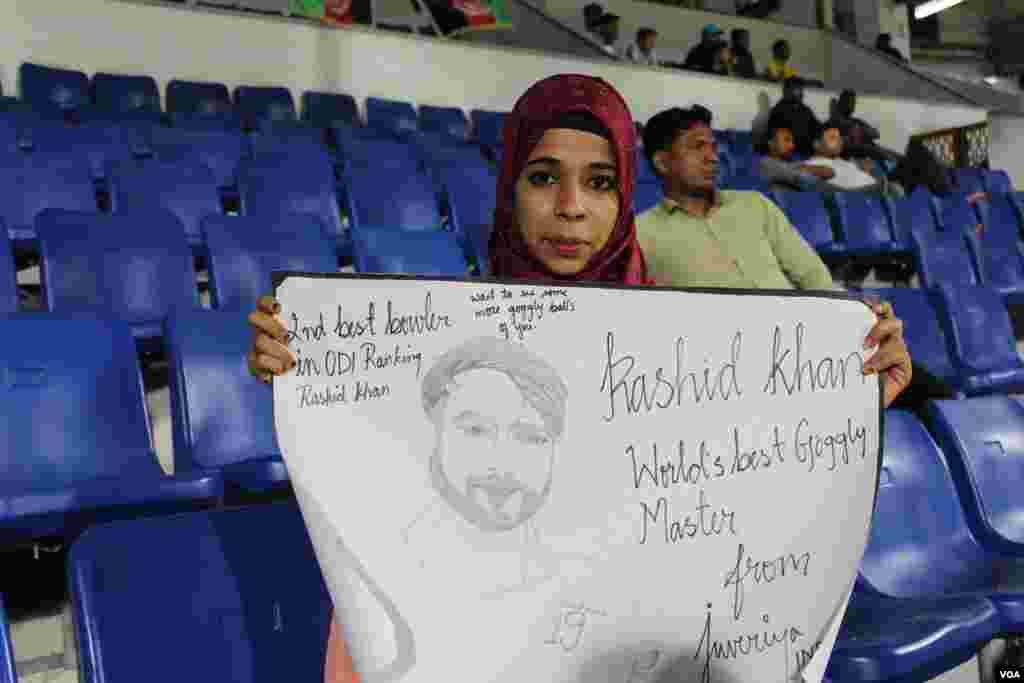 2nd best bowler
in ODI Ranking
Rashid Khan
wait to see some
more goggly ball's
of you
Rashid Khan
World's best Goggly
Master
from
Juveriya
19
VOA